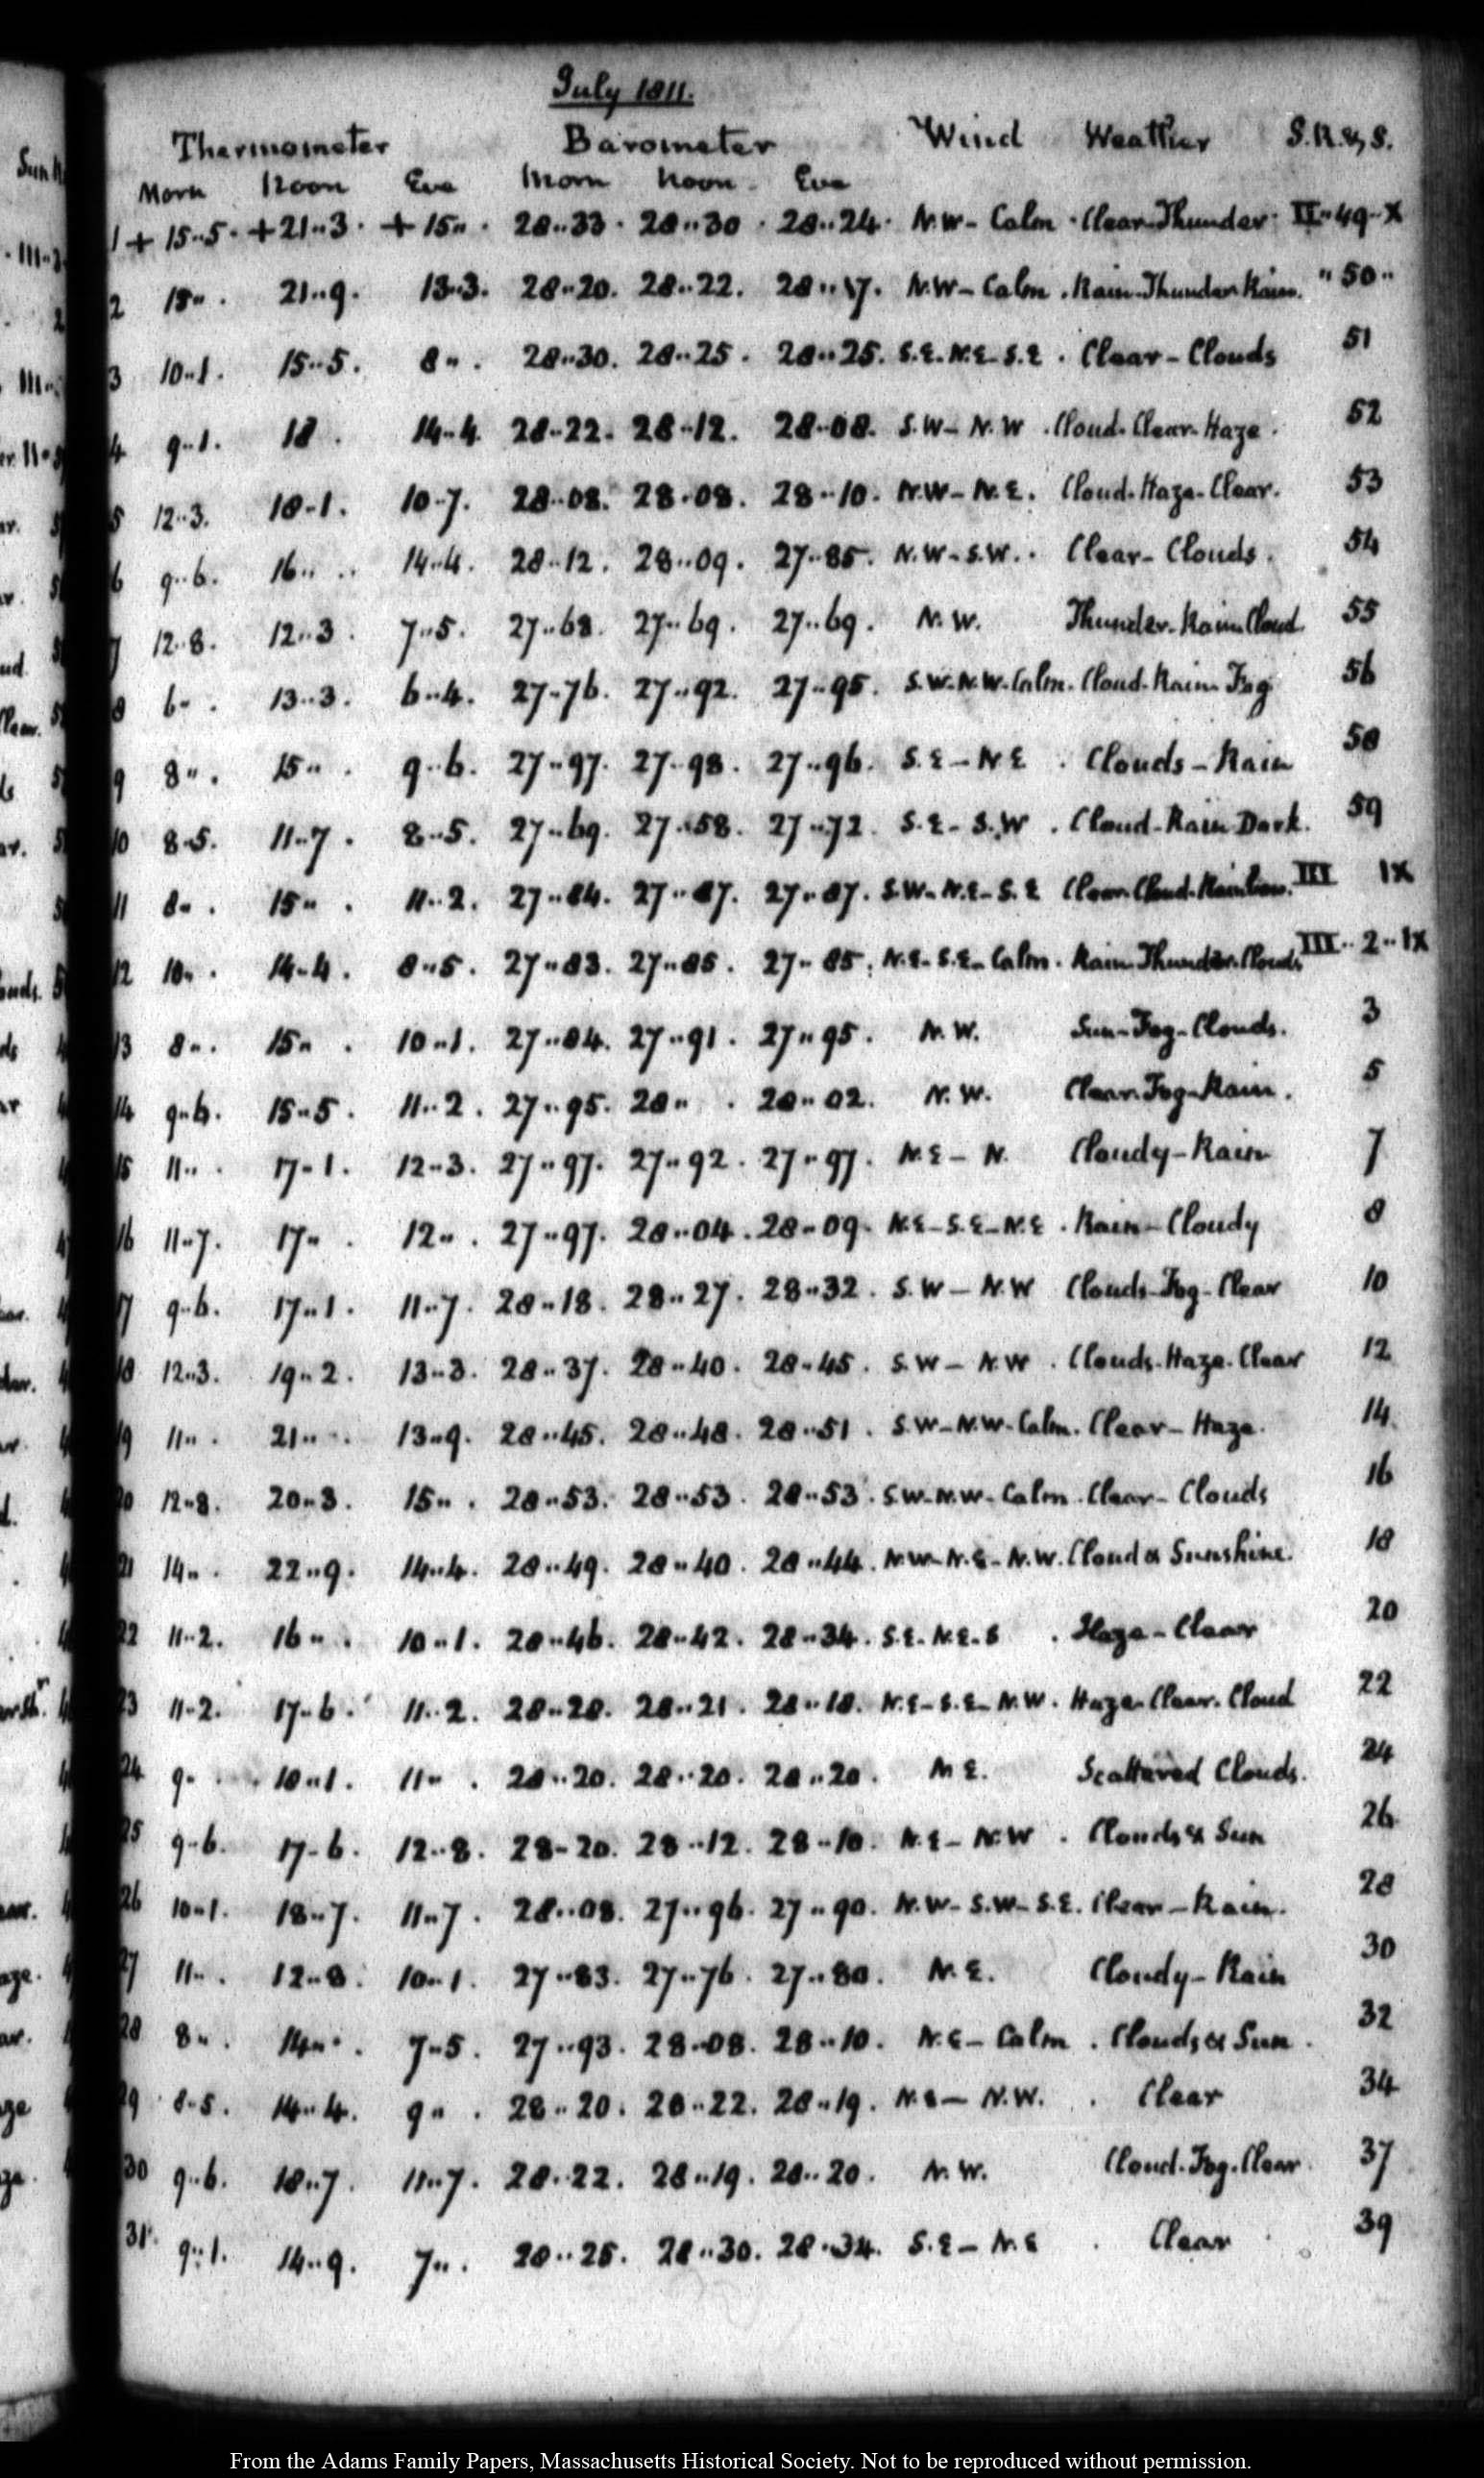 July 1811.
Thermometer Barometer Wind Weather S.R.&S.
Morn Noon Eve Morn Noon Eve
1 + 15..5. + 21..3. + 15.. . 28..33. 28..30. 28..24. N.W- Calm . Clear-Thunder. II..49..X
2 15.. . 21..9. 13..3. 28..20. 28..22. 28..17. N.W- Calm . Rain-Thunder Rain. " 50..
3 10..1. 15..5. 8.. . 28..30. 28..25. 28..25. S.E-N.E-S.E . Clear-Clouds 51
4 9..1. 18 . 14..4. 28..22. 28..12. 28..08. S.W- N.W . Cloud-Clear-Haze. 52
5 12..3. 18..1. 10..7. 28..08. 28..08. 28..10. N.W- N.E. Cloud-Haze-Clear. 53
6 9..6. 16.. .. 14..4. 28..12. 28..09. 27..85. N.W-S.W. . Clear-Clouds. 54
7 12..8. 12..3. 7..5. 27..68. 27..69. 27..69. N.W. Thunder-Rain-Cloud. 55
8 6.. . 13..3. 6..4. 27..76. 27..92. 27..95. S.W-N.W-Calm. Cloud-Rain-Fog 56
9 8.. . 15.. . 9..6. 27..97. 27..98. 27..96. S.E-N.E . Clouds-Rain 58
10 8..5. 11..7. 8..5. 27..69. 27..58. 27..72. S.E- S.W . Cloud-Rain-Dark. 59
11 8.. . 15.. . 11..2. 27..84. 27..87. 27..87. S.W-N.E-S.E Clear-Cloud-Rainbow. III IX
12 10.. . 14..4. 8..5. 27..83. 27..85. 27..85. N.E-S.E-Calm. Rain-Thunder-Clouds III..2..IX
13 8.. . 15.. . 10..1. 27..84. 27..91. 27..95. N.W. Sun-Fog-Clouds. 3
14 9..6. 15..5. 11..2. 27..95. 28.. . 28..02. N.W. Clear-Fog-Rain. 5
15 11.. . 17..1. 12..3. 27..97. 27..92. 27..97. N.E- N. Cloudy-Rain 7
16 11..7. 17.. . 12.. . 27..97. 28..04. 28..09. N.E-S.E-N.E . Rain-Cloudy 8
17 9..6. 17..1. 11..7. 28..18. 28..27. 28..32. S.W- N.W Clouds-Fog-Clear 10
18 12..3. 19..2. 13..3. 28..37. 28..40. 28..45. S.W- N.W . Clouds-Haze-Clear 12
19 11.. . 21.. . 13..9. 28..45. 28..48. 28..51. S.W-N.W-Calm. Clear-Haze. 14
20 12..8. 20..3. 15.. . 28..53. 28..53. 28..53. S.W-N.W-Calm . Clear-Clouds 16
21 14.. . 22..9. 14..4. 28..49. 28..40. 28..44. N.W-N.E-N.W. Cloud & Sunshine. 18
22 11..2. 16.. . 10..1. 28..46. 28..42. 28..34. S.E-N.E-S . Haze-Clear 20
23 11..2. 17..6. 11..2. 28..28. 28..21. 28..18. N.E-S.E-N.W. Haze-Clear-Cloud 22
24 9.. . 10..1. 11.. . 28..20. 28..20. 28..20. N E. Scattered Clouds. 24
25 9..6. 17..6. 12..8. 28..20. 28..12. 28..10. N.E- N.W . Clouds & Sun 26
26 10..1. 18..7. 11..7. 28..08. 27..96. 27..90. N.W- S.W- S.E. Clear-Rain. 28
27 11.. . 12..8. 10..1. 27..83. 27..76. 27..80. N.E. Cloudy-Rain 30
28 8.. . 14.. . 7..5. 27..93. 28..08. 28..10. N.E- Calm . Clouds & Sun . 32
29 8..5. 14..4. 9.. . 28..20. 28..22. 28..19. N.E- N.W. . Clear 34
30 9..6. 18..7. 11..7. 28..22. 28..19. 28..20. N.W. Cloud-Fog-Clear. 37
31. 9..1. 14..9. 7.. . 28..25. 28..30. 28..34. S.E- N.E . Clear . 39
From the Adams Family Papers, Massachusetts Historical Society. Not to be reproduced without permission.